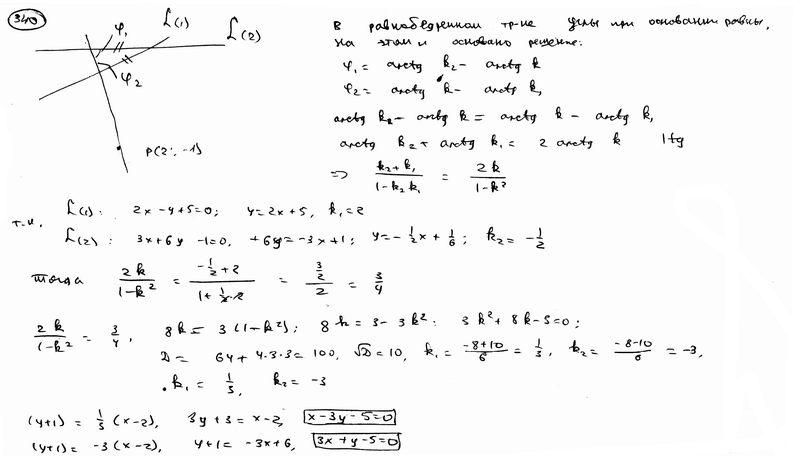 340
L(1)
L(2)
φ₁
φ₂
P(2; -1)
В равнобедренном тр-ке углы при основании равны,
на этом и основано решение:
φ₁ = arctg k₂ - arctg k
φ₂ = arctg k - arctg k₁
arctg k₂ - arctg k = arctg k - arctg k₁
arctg k₂ + arctg k₁ = 2 arctg k | tg
⇒ (k₂ + k₁)/(1 - k₂ k₁) = 2k/(1 - k²)
L(1): 2x - y + 5 = 0; y = 2x + 5, k₁ = 2
т.к.
L(2): 3x + 6y - 1 = 0, +6y = -3x + 1; y = -1/2 x + 1/6; k₂ = -1/2
тогда 2k/(1 - k²) = (-1/2 + 2)/(1 + 1/2·2) = (3/2)/2 = 3/4
2k/(1 - k²) = 3/4, 8k = 3(1 - k²); 8k = 3 - 3k²; 3k² + 8k - 3 = 0;
D = 64 + 4·3·3 = 100, √D = 10, k₁ = (-8 + 10)/6 = 1/3, k₂ = (-8 - 10)/6 = -3,
k₁ = 1/3, k₂ = -3
(y+1) = 1/3 (x - 2), 3y + 3 = x - 2, x - 3y - 5 = 0
(y+1) = -3(x - 2), y + 1 = -3x + 6, 3x + y - 5 = 0